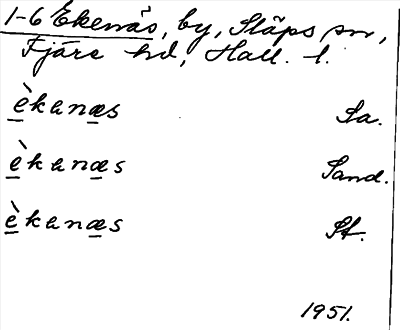 1-6 Ekenäs, by, Släps sn,
Fjäre hd, Hall. l.
è̱kenæ̱s Sa.
è̱kenæ̱s Sand.
è̱kenæ̱s St.
1951.